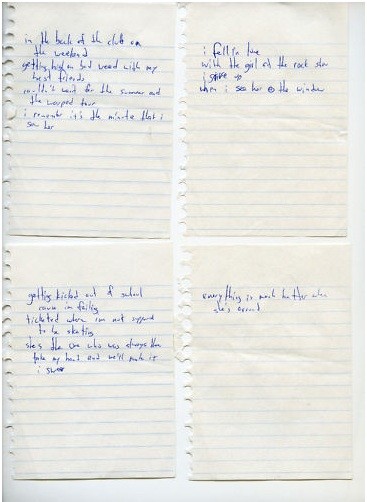 in the back of the club on
the weekend
getting high on bad weed with my
best friends
couldn't wait for the summer and
the warped tour
i remember it's the minute that i
saw her
i fell in love
with the girl at the rock show
i
when i saw her @ the window
getting kicked out of school
cause im failing
ticketed where im not supposed
to be skating
she's the one who was always there
take my hand and we'll make it
i swear
everything is much better when
she's around